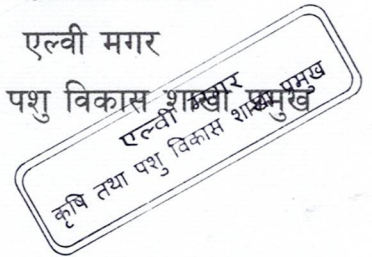 एल्वी मगर
पशु विकास शाखा प्रमुख
एल्वी मगर
कृषि तथा पशु विकास शाखा प्रमुख